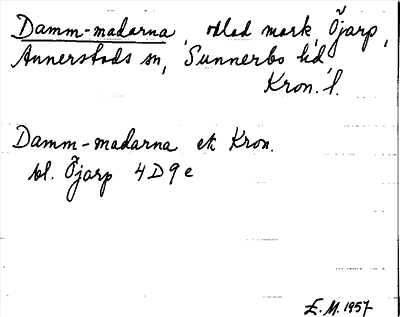 Damm-madarna, odlad mark, Öjarp,
Annerstads sn, Sunnerbo hd
Kron. l.
Damm-madarna ek Kron.
bl. Öjarp 4D9e
E. M. 1957